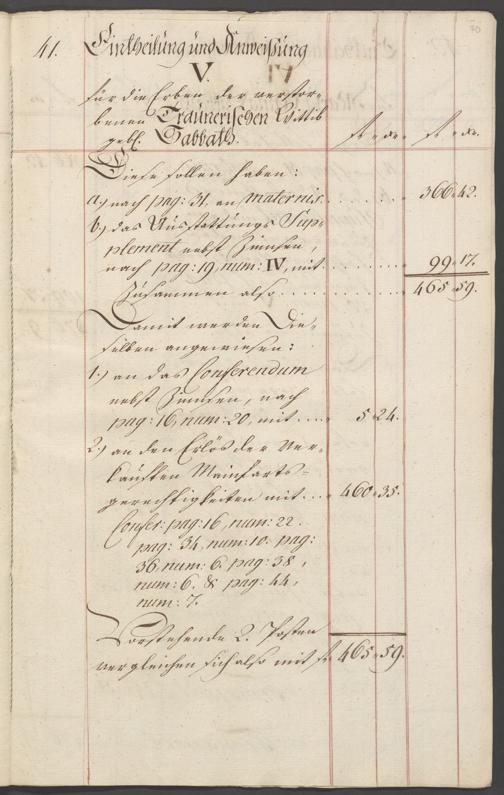 70
41. Eintheilung und Anweißung
V.
für die Erben der verstor-
benen Traunerischen Wittib
gebl. Sabbath.
f. x dr. f. x dr.
Diese sollen haben:
a.) nach pag: 31. an maternis. . . . . . . 366 x 42.
b.) das Ausstattungs Sup-
plement nebst Zinnsen,
nach pag: 19, num: IV, mit . . . . . . 99 x 17.
Zusammen also . . . . . . . . 465 x 59.
Damit werden Die-
selben angewiesen:
1.) an das Conferendum
nebst Zinnsen, nach
pag: 16, num: 20, mit . . . . 5 x 24.
2.) an den Erlös der Ver-
kauften
gerechtigkeiten mit . . . 460 x 35.
Confer: pag: 16, num: 22.
pag: 34, num: 10. pag:
36, num: 6. pag: 38,
num: 6. & pag: 44,
num: 7.
Vorstehende 2. Posten
vergleichen sich also mit f. 465 x 59.